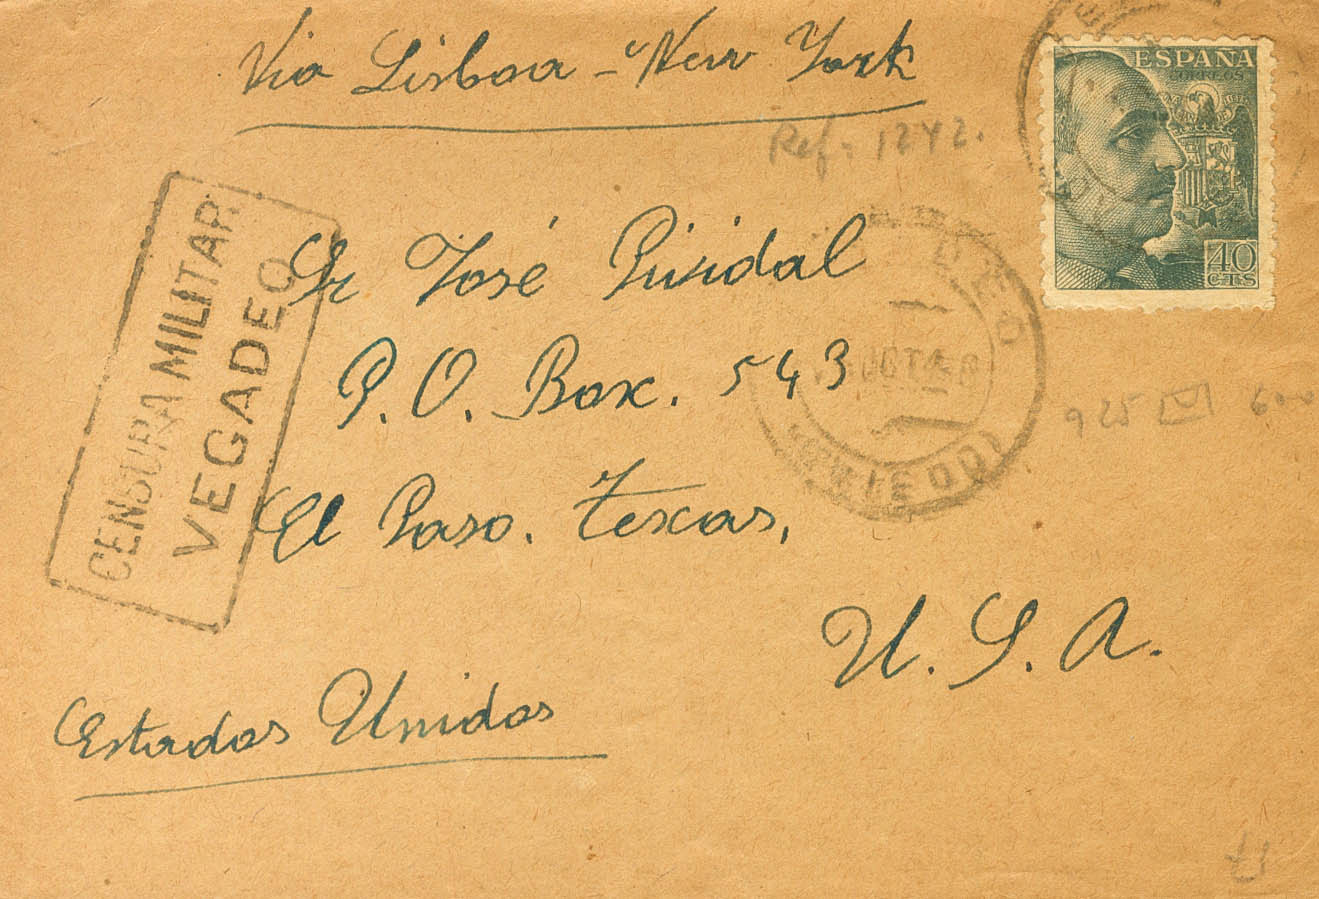 Via Lisboa - New York
ESPAÑA
CORREOS
40
CTS
Ref: 1242.
CENSURA MILITAR
VEGADEO
Sr José Pividal
P. O. Box. 543
El Paso. Texas,
U. S. A.
Estados Unidos
OCT 40
(OVIEDO)
925 600